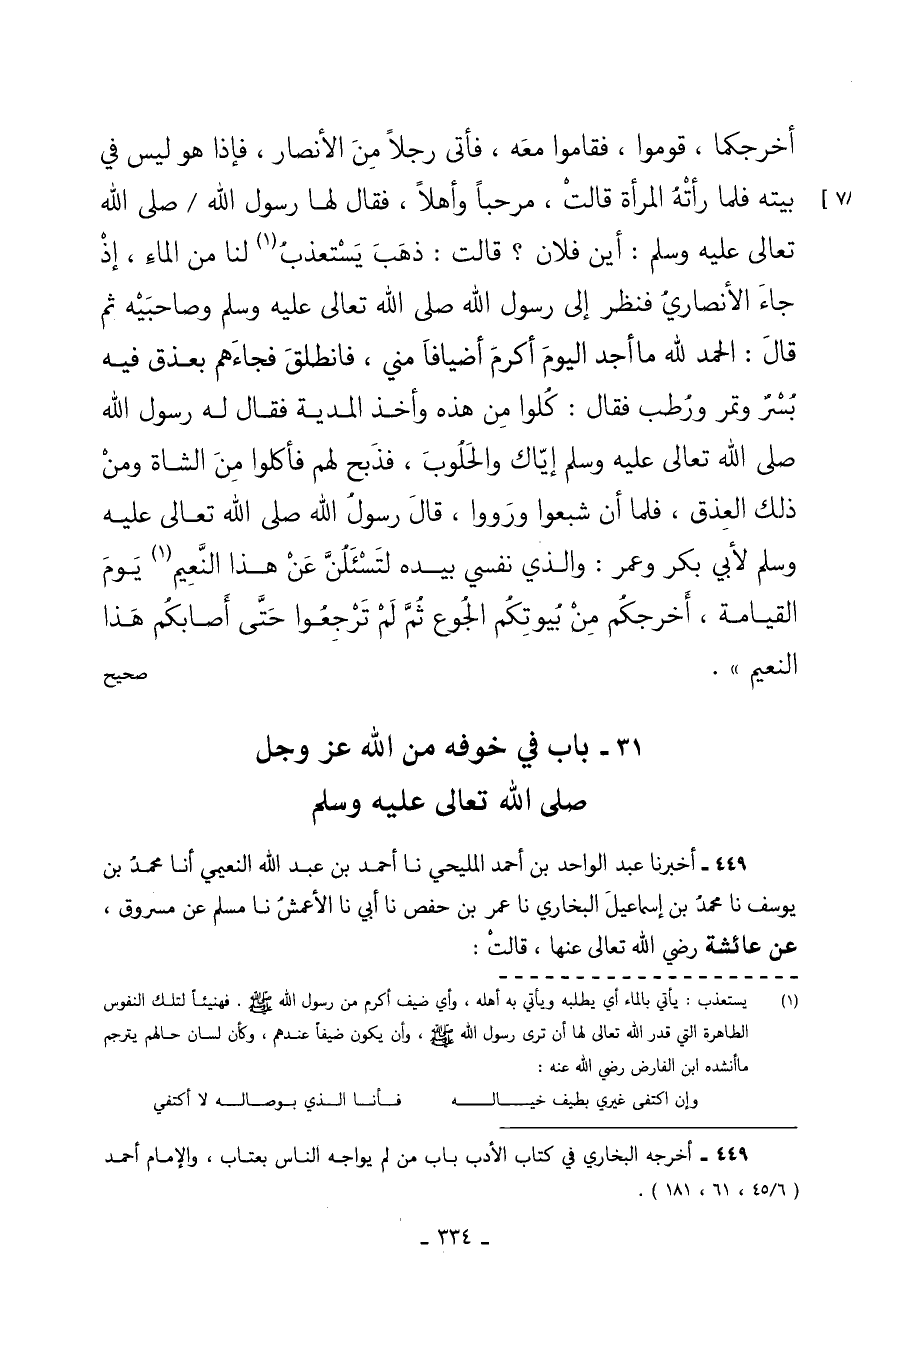 أخرجكما ، قوموا ، فقاموا معَه ، فأتى رجلاً مِنَ الأنصار ، فإذا هو ليس في
بيته فلما رأتْهُ المرأة قالتْ ، مرحباً وأهلاً ، فقال لهـا رسول الله / صلى الله [ ٧/
تعالى عليه وسلم : أين فلان ؟ قالت : ذهَبَ يَسْتعذبُ(١) لنا من الماءِ ، إذْ
جاءَ الأنصاريُ فنظر إلى رسول الله صلى الله تعالى عليه وسلم وصاحبَيْه ثم
قالَ : الحمد لله ماأجد اليومَ أكرمَ أضيافاً مني ، فانطلقَ فجاءَهم بعـذق فيـه
بُسْرٌ وتمر ورُطب فقال : كُلوا مِن هذه وأخـذ المـديـة فقـال لـه رسول الله
صلى الله تعالى عليه وسلم إيّاك والحَلُوبَ ، فذَبح لهم فأكلوا مِنَ الشاة ومنْ
ذلك العِذق ، فلما أن شبعوا ورَووا ، قالَ رسولُ الله صلى الله تعـالى عليـه
وسلم لأبي بكر وعمر : والـذي نفسي بيـده لتَسْئَلُنَّ عَنْ هـذا النَّعِيمِ(١) يَـومَ
القيـامـة ، أَخرجكُم مِنْ بُيوتِكُم الجُوع ثُمَّ لَمْ تَرْجِعُـوا حَتَّى أَصـابكُم هَـذا
النعيم » .
صحيح
٣١ ـ باب في خوفه من الله عز وجل
صلى الله تعالى عليه وسلم
٤٤٩ ـ أخبرنا عبد الواحد بن أحمد المليحي نـا أحمـد بن عبـد الله النعيمي أنـا محمدُ بن
يوسف نا محمدُ بن إسماعيلَ البخاري نا عمر بن حفص نا أبي نا الأعمشُ نـا مسلم عن مسروق ،
عن عائشة رضي الله تعالى عنها ، قالتْ :
(١) يستعذب : يأتي بالماء أي يطلبه ويأتي به أهله ، وأي ضيف أكرم من رسول الله ﷺ . فهنيئـاً لتلـك النفوس
الطاهرة التي قدر الله تعالى لها أن ترى رسول الله ﷺ ، وأن يكون ضيفاً عنـدهم ، وكأن لسـان حـالهم يترجم
ماأنشده ابن الفارض رضي الله عنه :
وإن اكتفى غيري بطيف خيـــالـــه فـأنـا الـذي بـوصـالـه لا أكتفي
٤٤٩ ـ أخرجه البخاري في كتاب الأدب بـاب من لم يواجـه النـاس بعتـاب ، والإمـام أحمـد
( ٤٥/٦ ، ٦١ ، ١٨١ ) .
ـ ٣٣٤ ـ